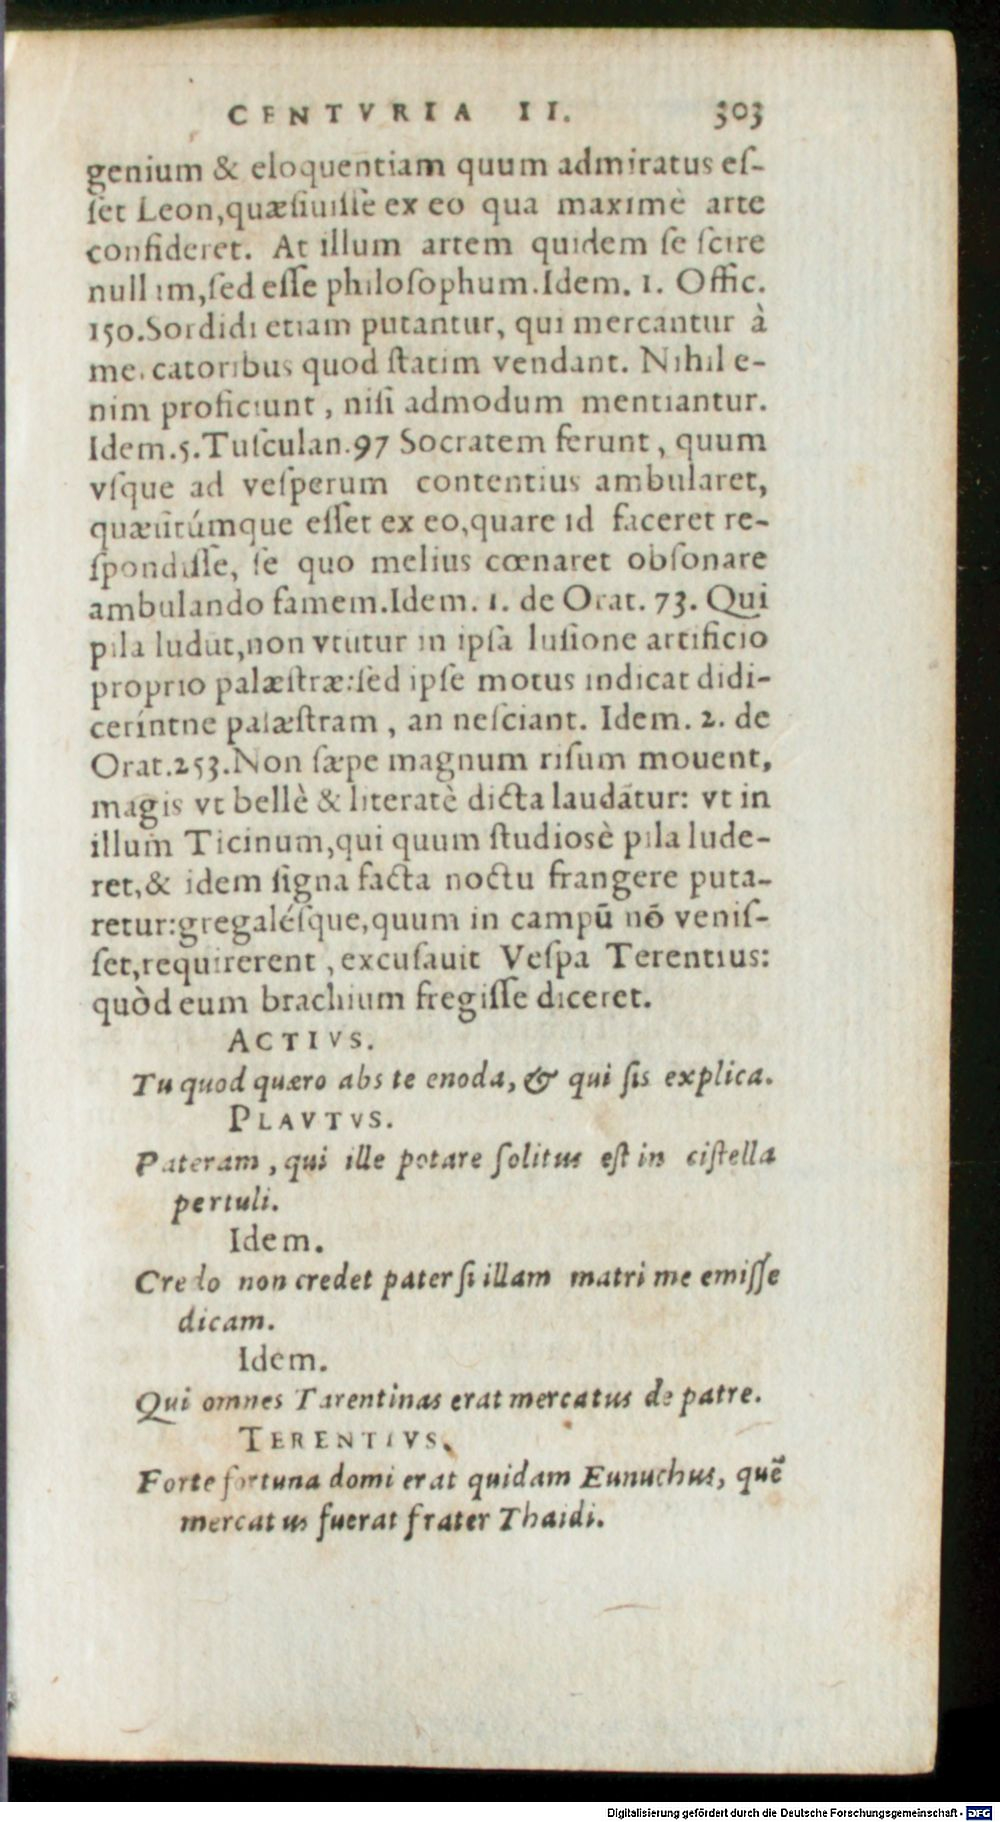 CENTVRIA II. 303
genium & eloquentiam quum admiratus eſ-
ſet Leon,quæſiuiſſe ex eo qua maximè arte
confideret. At illum artem quidem ſe ſcire
nullum,ſed eſſe philoſophum.Idem. 1. Offic.
150.Sordidi etiam putantur, qui mercantur à
mercatoribus quod ſtatim vendant. Nihil e-
nim proficiunt, niſi admodum mentiantur.
Idem.5.Tuſculan.97 Socratem ferunt, quum
vſque ad veſperum contentius ambularet,
quæſitúmque eſſet ex eo,quare id faceret re-
ſpondiſſe, ſe quo melius cœnaret obſonare
ambulando famem.Idem. 1. de Orat. 73. Qui
pila ludūt,non vtūtur in ipſa luſione artificio
proprio palæſtræ:ſed ipſe motus indicat didi-
ceríntne palæſtram, an neſciant. Idem. 2. de
Orat.253.Non ſæpe magnum riſum mouent,
magis vt bellè & literatè dicta laudātur: vt in
illum Ticinum,qui quum ſtudiosè pila lude-
ret,& idem ſigna facta noctu frangere puta-
retur:gregaléſque,quum in campū nō veniſ-
ſet,requirerent, excuſauit Veſpa Terentius:
quòd eum brachium fregiſſe diceret.
ACTIVS.
Tu quod quæro abs te enoda, & qui ſis explica.
PLAVTVS.
Pateram, qui ille potare ſolitus eſt in ciſtella
pertuli.
Idem.
Credo non credet pater ſi illam matri me emiſſe
dicam.
Idem.
Qui omnes Tarentinas erat mercatus de patre.
TERENTIVS.
Forte fortuna domi erat quidam Eunuchus, quē
mercatus fuerat frater Thaidi.
Digitalisierung gefördert durch die Deutsche Forschungsgemeinschaft - DFG